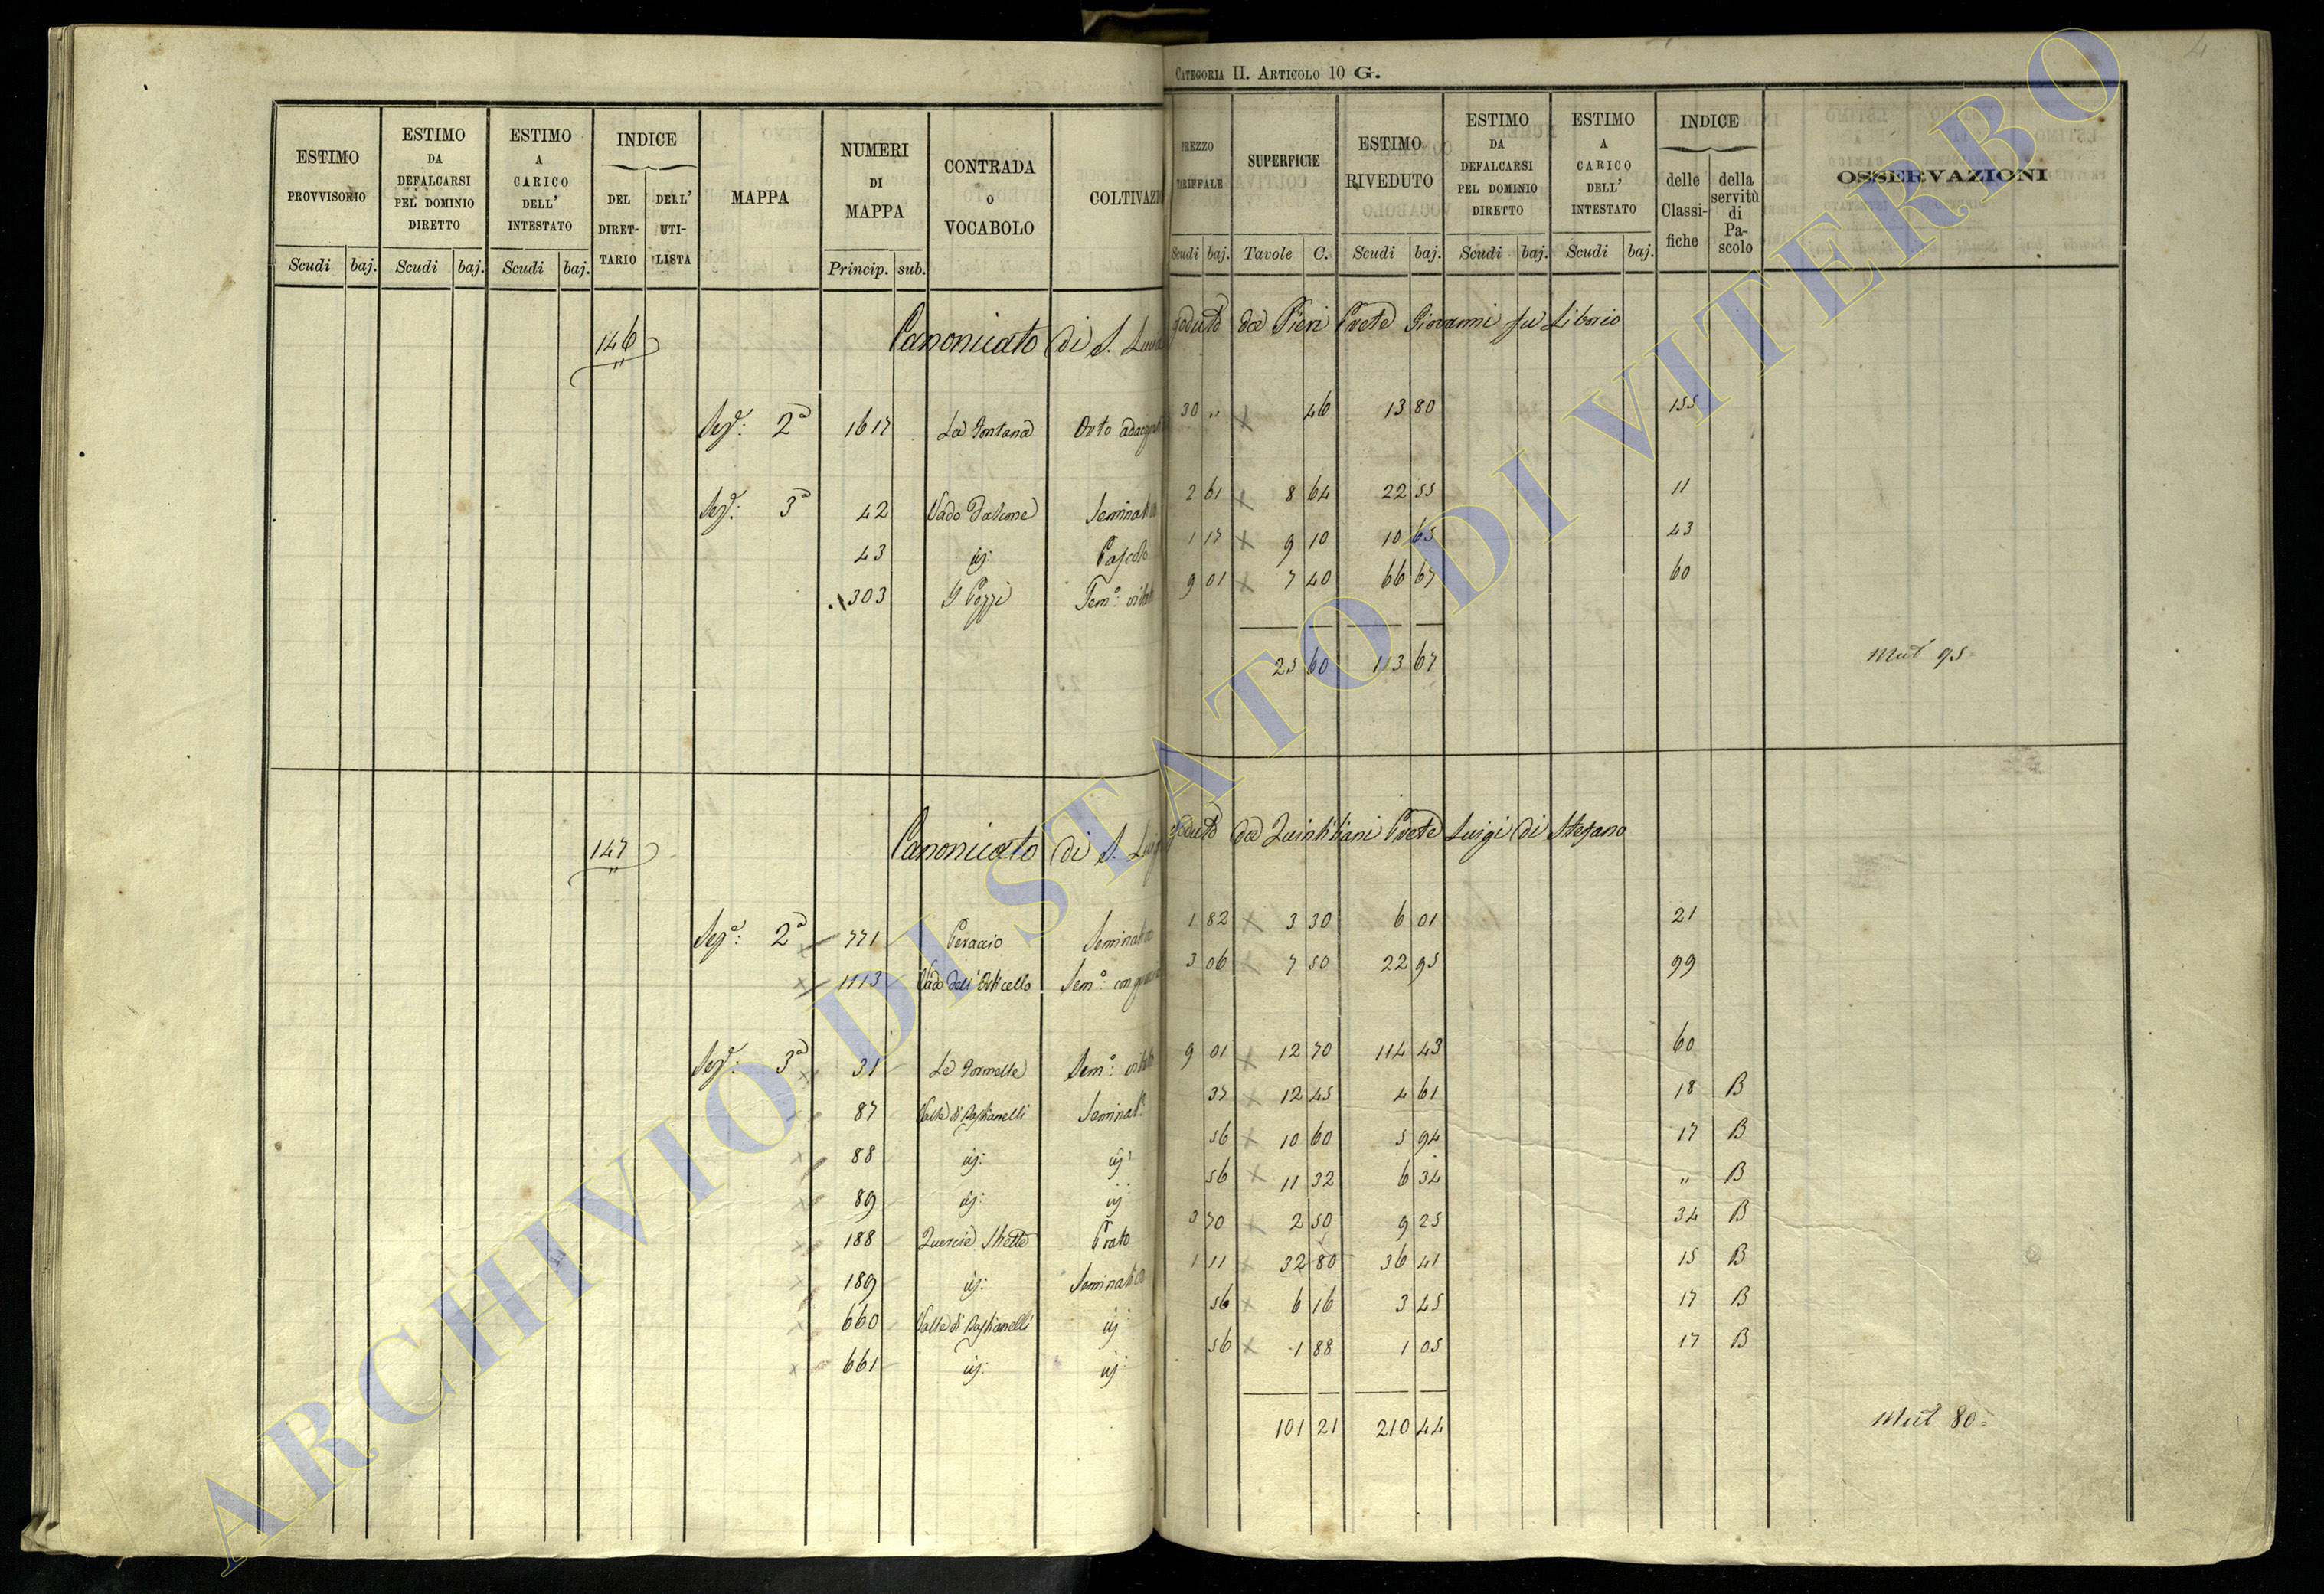 CATEGORIA II. ARTICOLO 10 G.
4
ESTIMO PROVVISORIO Scudi baj.
ESTIMO DA DEFALCARSI PEL DOMINIO DIRETTO Scudi baj.
ESTIMO A CARICO DELL' INTESTATO Scudi baj.
INDICE DEL DIRET-TARIO DELL' UTI-LISTA
MAPPA
NUMERI DI MAPPA Princip. sub.
CONTRADA o VOCABOLO
COLTIVAZIO
PREZZO TARIFFALE Scudi baj.
SUPERFICIE Tavole C.
ESTIMO RIVEDUTO Scudi baj.
ESTIMO DA DEFALCARSI PEL DOMINIO DIRETTO Scudi baj.
ESTIMO A CARICO DELL' INTESTATO Scudi baj.
INDICE delle Classi-fiche della servitù di Pa-scolo
OSSERVAZIONI
146 Canonicato di S. goduto da Pieri Prete Giovanni fu Liborio
Seg: 2a 1617 La Fontana Orto 30 " 46 13 80 155
Seg: 3a 42 Vado Seminat 2 61 8 64 22 55 11
43 ij: Pascolo 1 17 9 10 10 65 43
303 I Pozzi Sem.o vitat 9 01 7 40 66 67 60
25 60 113 67 Mut 95
147 Canonicato di S. goduto da Quintiliani Prete Luigi di Stefano
Sega: 2a 771 Peraccio Seminat 1 82 3 30 6 01 21
1113 Vado dell' Orticello Sem.o con 3 06 7 50 22 95 99
Seg: 3a 31 Le Formelle Sem.o vitat 9 01 12 70 114 43 60
87 Valle di Bastianelli Seminat.o 37 12 45 4 61 18 B
88 ij: ij: 56 10 60 5 94 17 B
89 ij: ij: 56 11 32 6 34 " B
188 Quercie Strette Prato 3 70 2 50 9 25 34 B
189 ij: Seminat 1 11 32 80 36 41 15 B
660 Valle di Bastianelli ij: 56 6 16 3 45 17 B
661 ij: ij: 56 1 88 1 05 17 B
101 21 210 44 Mut 80=
ARCHIVIO DI STATO DI VITERBO